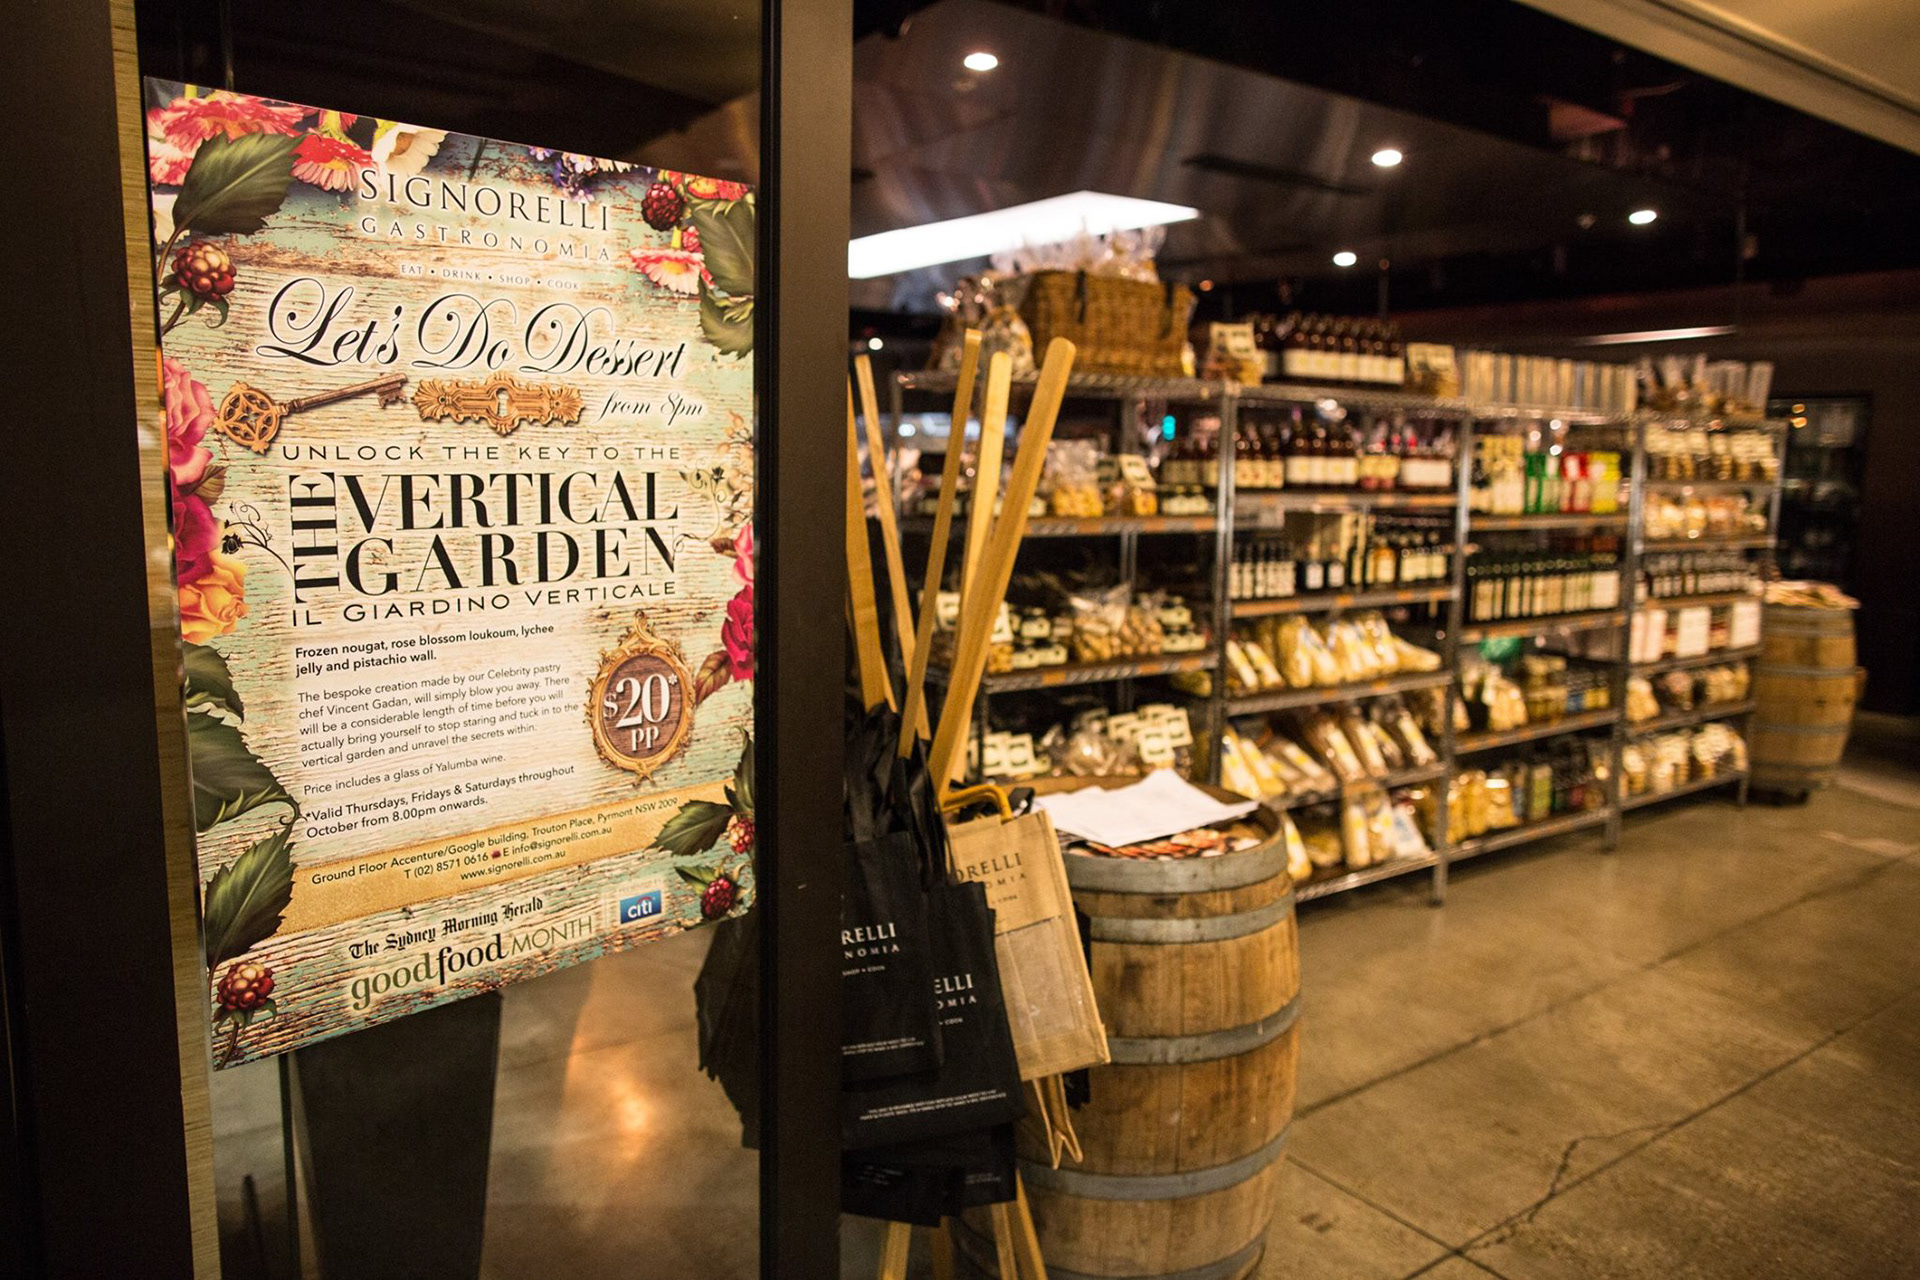 SIGNORELLI
GASTRONOMIA
EAT • DRINK • SHOP • COOK
Let's Do Dessert
from 8pm
UNLOCK THE KEY TO THE
THE VERTICAL
GARDEN
IL GIARDINO VERTICALE
Frozen nougat, rose blossom loukoum, lychee
jelly and pistachio wall.
The bespoke creation made by our Celebrity pastry
chef Vincent Gadan, will simply blow you away. There
will be a considerable length of time before you will
actually bring yourself to stop staring and tuck in to the
vertical garden and unravel the secrets within.
$20*
PP
Price includes a glass of Yalumba wine.
*Valid Thursdays, Fridays & Saturdays throughout
October from 8.00pm onwards.
Ground Floor Accenture/Google building, Trouton Place, Pyrmont NSW 2009
T (02) 8571 0616 E info@signorelli.com.au
www.signorelli.com.au
The Sydney Morning Herald
goodfood MONTH
citi
ORELLI
OMIA
RELLI
NOMIA
SHOP • COOK
ELLI
OMIA
• COOK